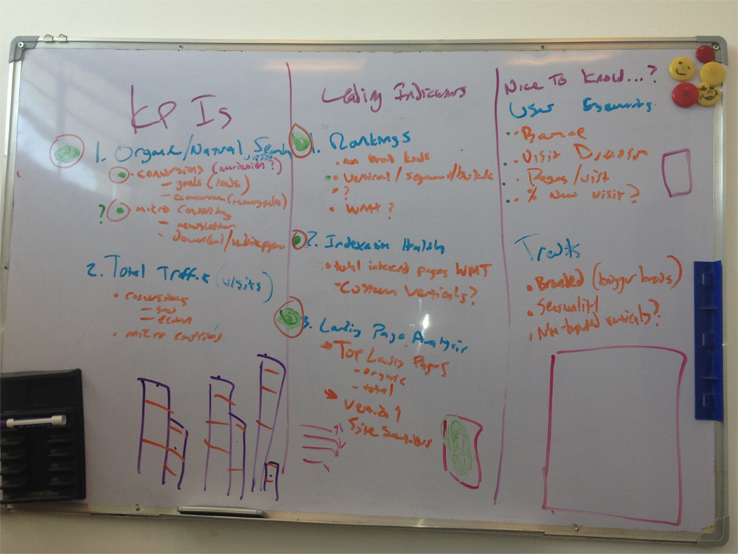 KPIs
1. Organic/Natural Search
visits
• conversions (
– goals (leads)
– ecommerce (
?
• micro
– newsletter
– Download/whitepaper
2. Total Traffic (visits)
• conversions
–
– ecomm
• micro
Leading Indicators
1. Rankings
• non brand
• vertical/segment/
• ?
• WMT?
2. Indexation Health
• total indexed pages WMT
• Custom Verticals?
3. Landing Page Analysis
Top Landing Pages
– organic
– total
Vertical
Site Sections
Nice To Know...?
User
• Bounce
• Visit Duration
• Pages/visit
• % New visit?
Trends
• Branded (bigger brands)
• Seasonality
• Non-branded verticals?